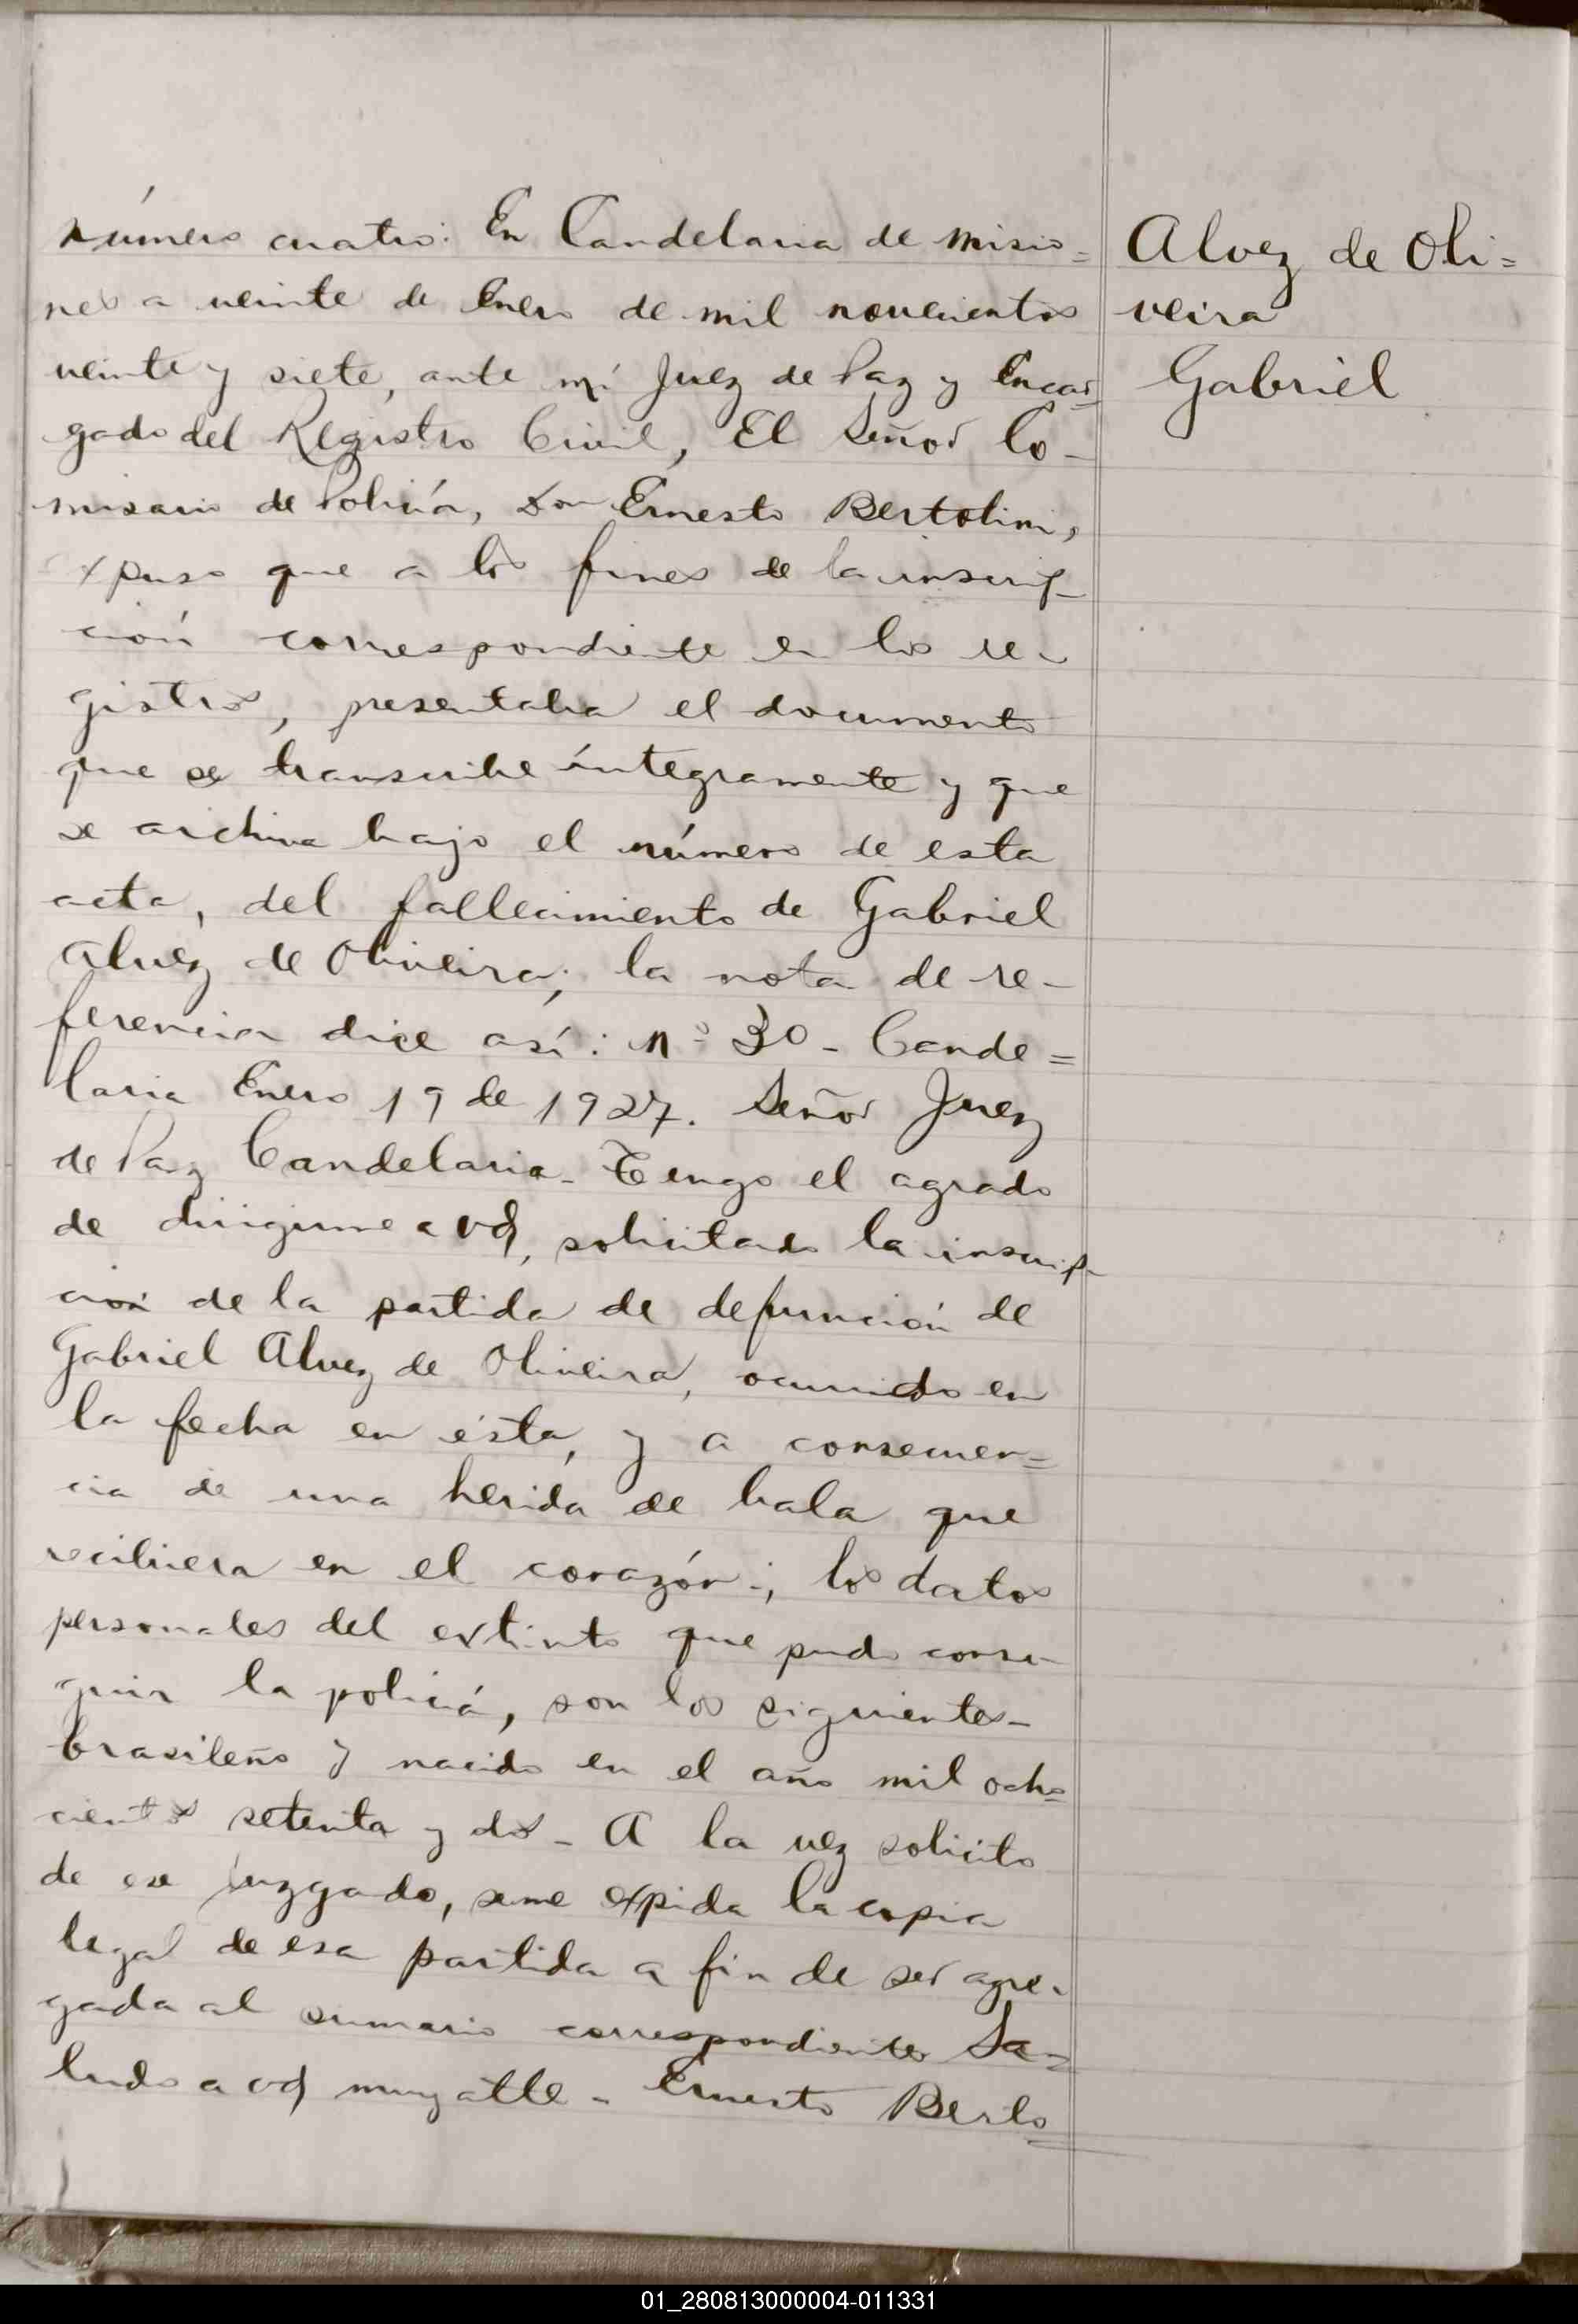 número cuatro: En Candelaria de Misio=
nes a veinte de Enero de mil novecientos
veinte y siete, ante mí Juez de Paz y Encar=
gado del Registro Civil, El Señor Co-
misario de Policía, Don Ernesto Bertolini,
expuso que a los fines de la inscrip-
ción correspondiente en los re-
gistros, presentaba el documento
que se transcribe íntegramente y que
se archiva bajo el número de esta
acta, del fallecimiento de Gabriel
Alvez de Oliveira; la nota de re-
ferencia dice así: Nº 30 - Cande=
laria Enero 19 de 1927. Señor Juez
de Paz Candelaria - Tengo el agrado
de dirigirme a Vd, solicitando la inscrip-
ción de la partida de defunción de
Gabriel Alvez de Oliveira, ocurrido en
la fecha en ésta, y a consecuen=
cia de una herida de bala que
recibiera en el corazón; los datos
personales del extinto que pudo conse-
guir la policía, son los siguientes -
brasileño y nacido en el año mil ocho=
cientos setenta y dos - A la vez solicito
de ese juzgado, se me expida la copia
legal de esa partida a fin de ser agre-
gada al sumario correspondiente Sa=
ludo a Vd muy atte - Ernesto Berto=
Alvez de Oli=
veira
Gabriel
01_280813000004-011331